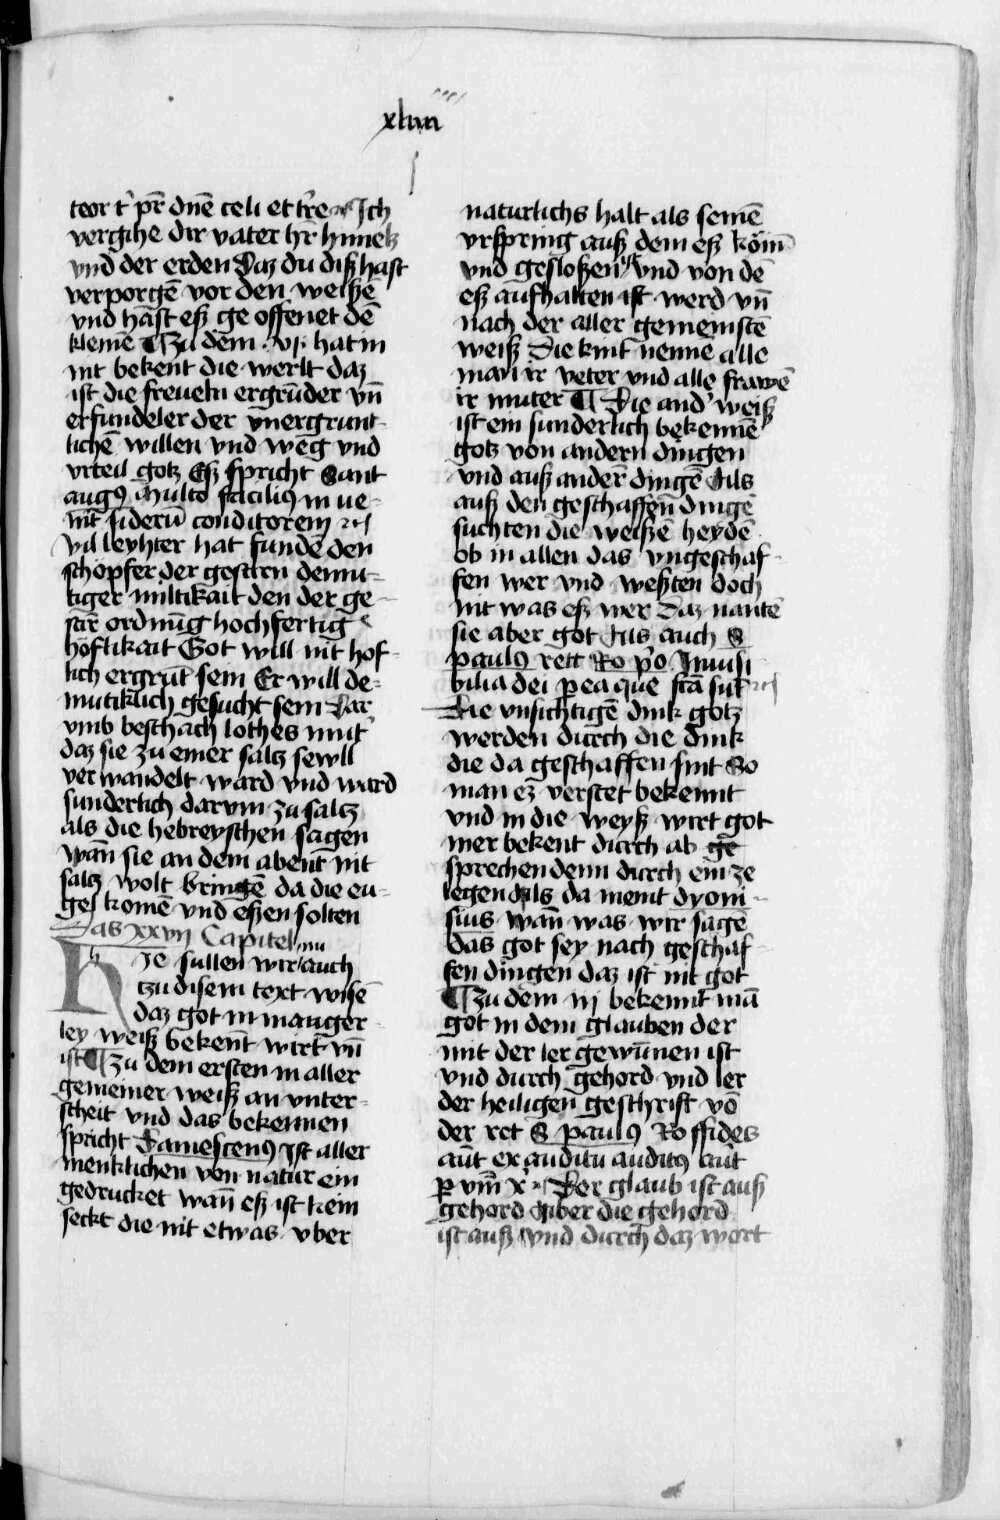 xlviii
teor t' pr̄ dnē celi et tr̄e ⁊c Ich
vergihe dir vater hr̄ himels
vnd der erden Daz du diß hast
verporgē vor den weißē
vnd hast eß ge offenet dē
kleinē ¶ Zu dem .vj. hat in
nit bekent die werlt daz
ist die freueln ergrūder vn̄
erfundeler der vnergrunt-
lichē willen vnd weg vnd
vrteil gotz Eß spricht Sant
augꝰ Multo faciliꝰ in ue-
nit siderū conditorem ⁊c
vil leyhter hat fundē den
schopfer der gestirn demu-
tiger miltikait den der ge-
stir̄ ordnūg hochfertig
höflikait Got will nit hof-
lich ergrūt sein Er will de-
mutiklich gesucht sein Dar
vmb beschach lothes mut'
daz sie zu einer saltz sewll
verwandelt ward vnd ward
sunderlich darvm zu saltz
als die hebreyschen sagen
wan̄ sie an dem abent nit
saltz wolt bringē da die en-
gel komē vnd eßen solten
Das xxvij Capitel
HJe sullen wir nu auch
tzu disem text wisē
daz got in manger-
ley weiß bekent wirt vn̄
ist ¶ Zu dem ersten in aller
gemeiner weiß an vnter-
scheit vnd das bekennen
spricht Damescenꝰ Ist aller
menklichen von natur ein
gedrucket wan̄ eß ist kein
seckt die nit etwas vber
naturlichs halt als seinē
vrspring auß dem eß köm̄
vnd gesloßen vnd von dē
eß aufhalten ist werd vn̄
nach der aller gemeinstē
weiß Die kint nennē alle
man ir veter vnd alle frawē
ir muter ¶ Die and' weiß
ist ein sunderlich bekennē
gotz von andern dingen
vnd auß anderē dingē Als
auß den geschaffen̄ dingē
suchten die weißē heydē
ob in allen das vngeschaf-
fen wer vnd westen doch
nit was eß wer Daz nantē
sie aber got Als auch S
paulꝰ rett Ro pͦ Jnuisi
bilia dei per ea que fc̄a sūt ⁊c
Die vnsichtigē dink gotz
werden durch die dink
die da geschaffen sint So
man eß verstet bekennt
vnd in die weyß wirt got
mer bekent durch ab ge
sprechen denn durch ein ze
legen Als da meint dyoni-
sius wan̄ was wir sagē
das got sey nach geschaf-
fen dingen daz ist nit got
¶ Zu dem iij bekennt mā
got in dem glauben der
mit der ler gewūnen ist
vnd durch gehord vnd ler
der heiligen geschrift vō
der ret S paulꝰ Ro ffides
aūt ex auditu auditꝰ aūt
ꝑ vm̄ x' ⁊c Der glaub ist auß
gehord Aber die gehord
ist auß vnd durch daz wort